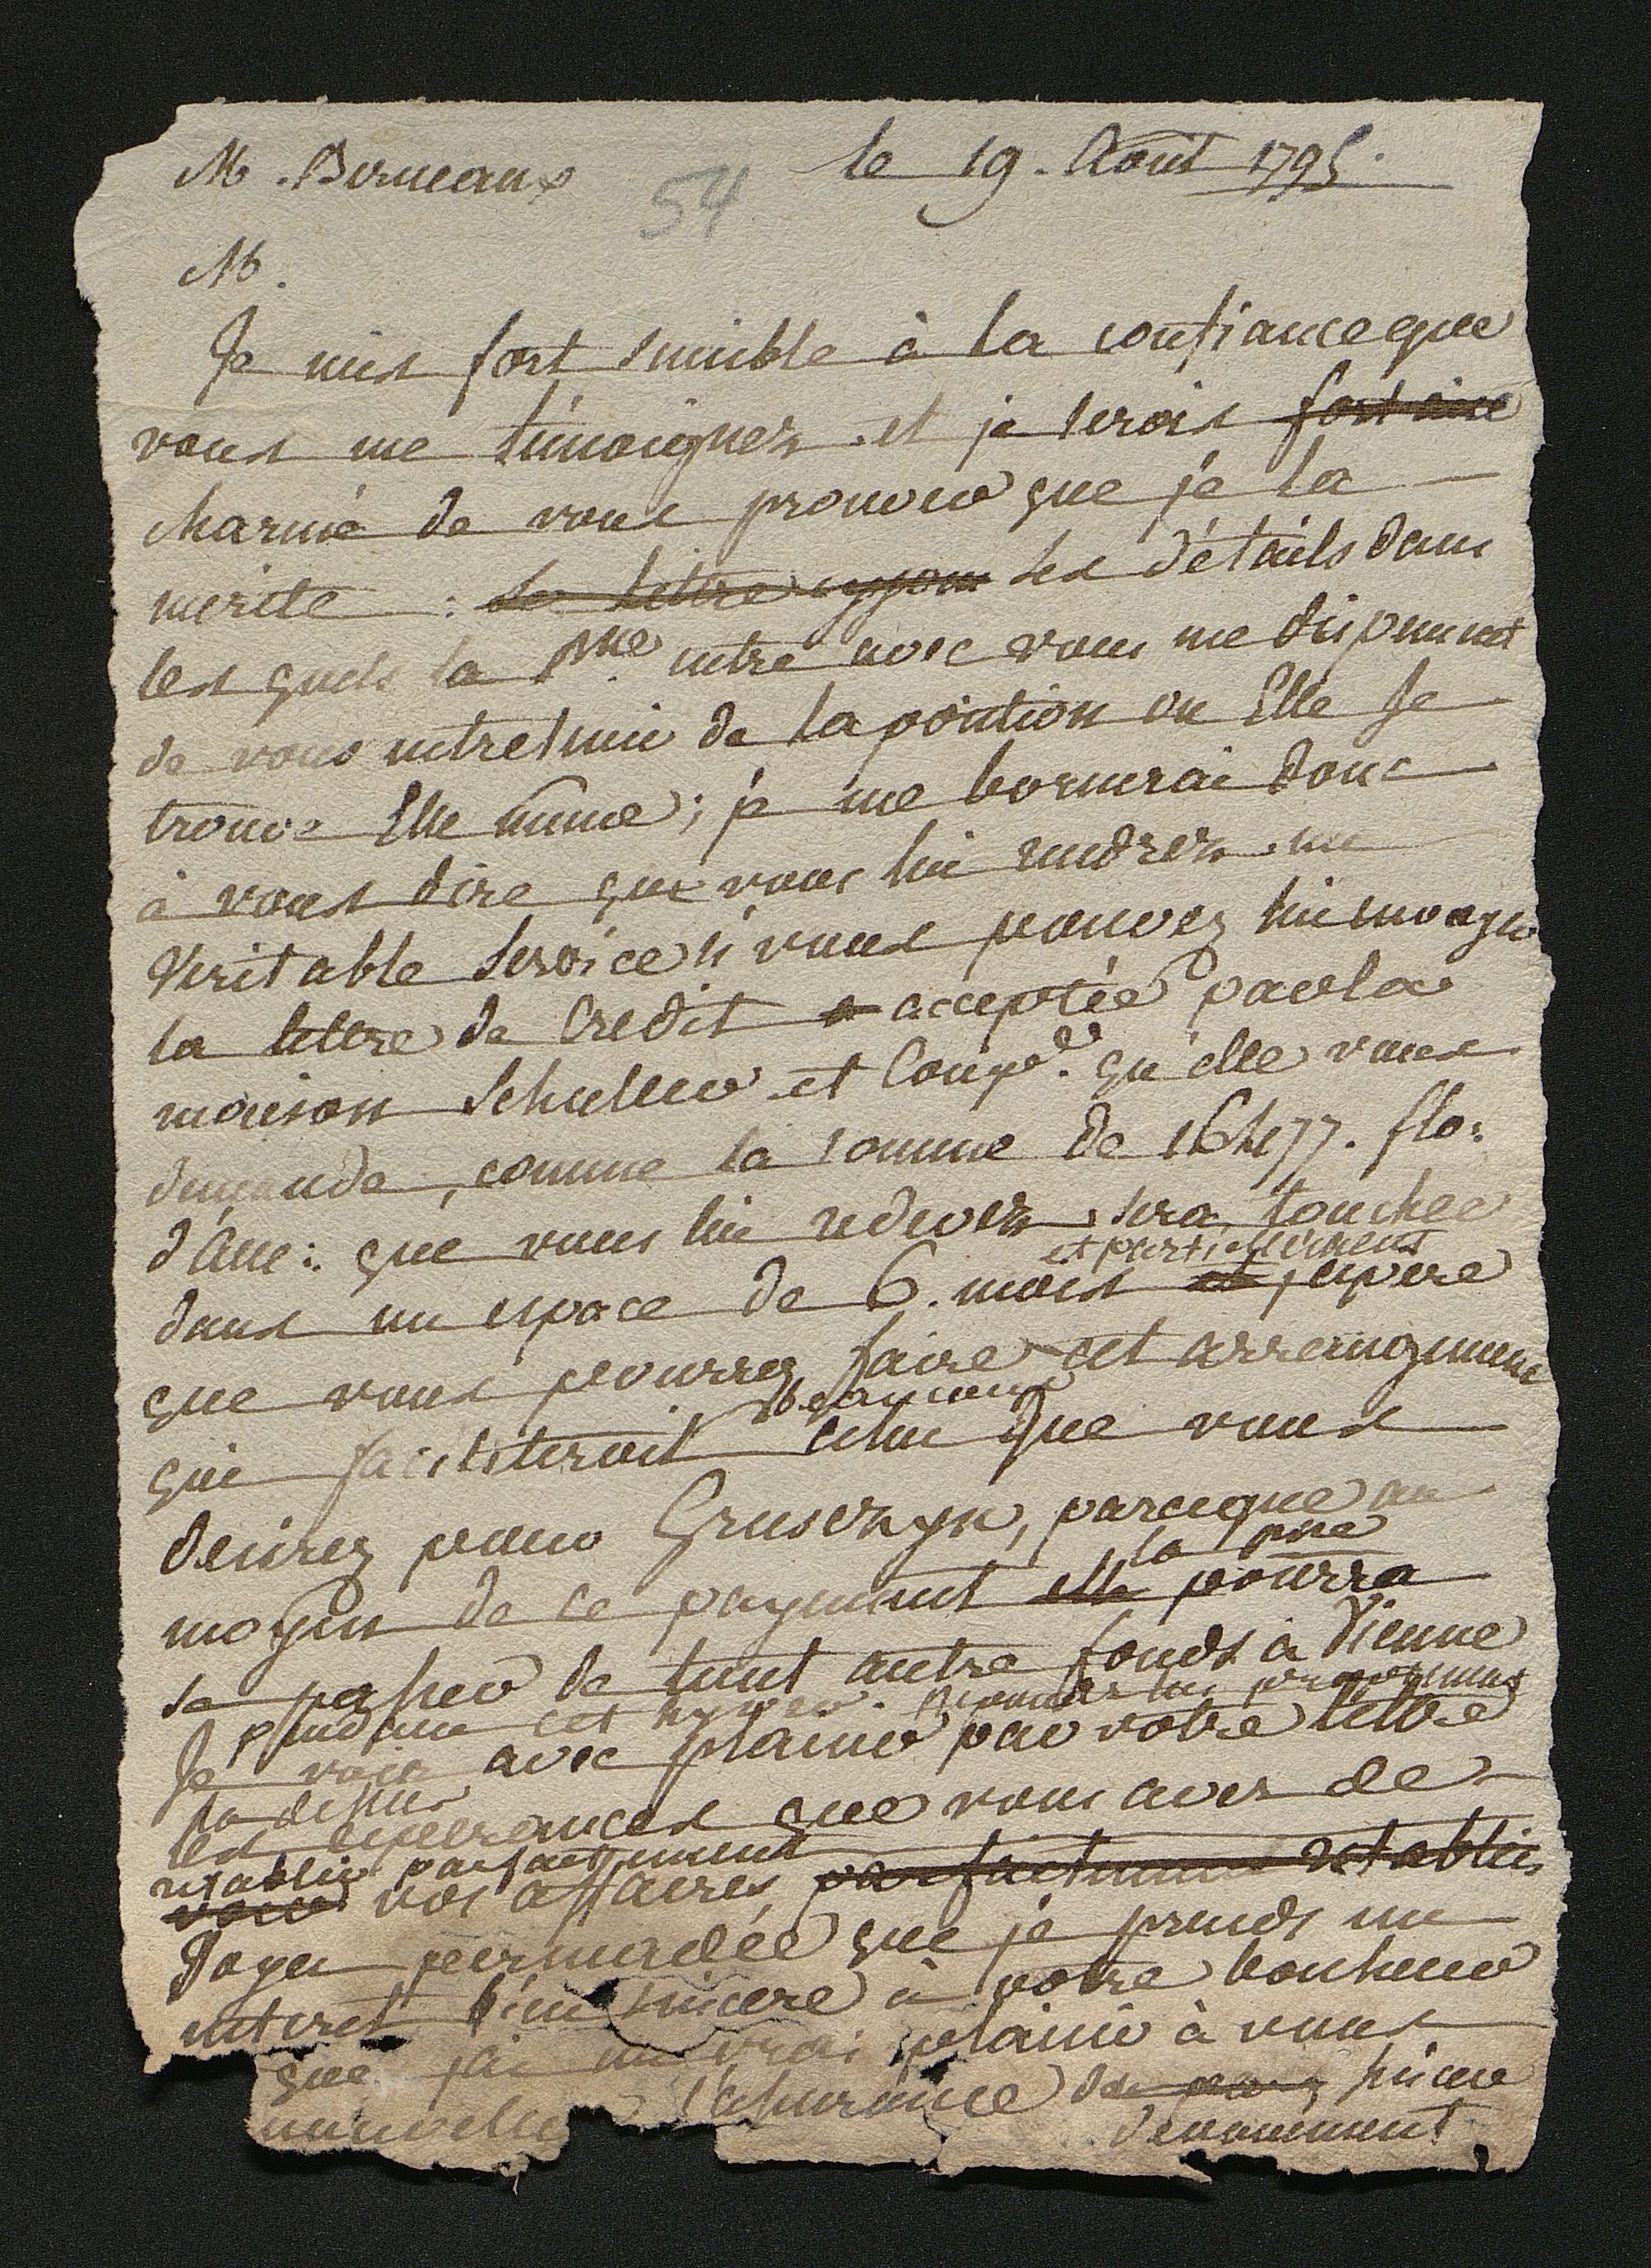 M. Berneaux le 19. Août 1795.
54
M.
Je suis fort sensible à la confiance que
vous me témoignez et je serois fort aise
charmé de vous prouver que je la
merite : les details dans
les quels la Psse entre avec vous me dispensent
de vous entretenir de la position ou Elle se
trouve Elle même ; je me bornerai donc
à vous dire que vous lui rendrez un
veritable service si vous pouvez lui envoyer
la lettre de Credit acceptée par la
maison Schuller et Compe. qu'elle vous
demande, comme la somme de 16477. flo:
d'All: que vous lui redevez sera touchee
et partiellement
dans un espace de 6. mois et j'espere
que vous pourrez faire cet arrangement
beaucoup
qui faciliteroit celui que vous
desirez pour Gruszczyn, parceque au
la psse
moyen de ce payement elle pourra
se passer de tout autre fonds à Vienne
pendant cet hyver.
Je vois avec plaisir par votre lettre
la dessus
les esperances que vous avez de
retablir parfaitement
voir vos affaires parfaitement retablies
Soyez persuadée que je prends un
interet bien sincere à votre bonheur
que j'ai un vrai plaisir à vous
nouvelle l'assurance de sincere
devouement